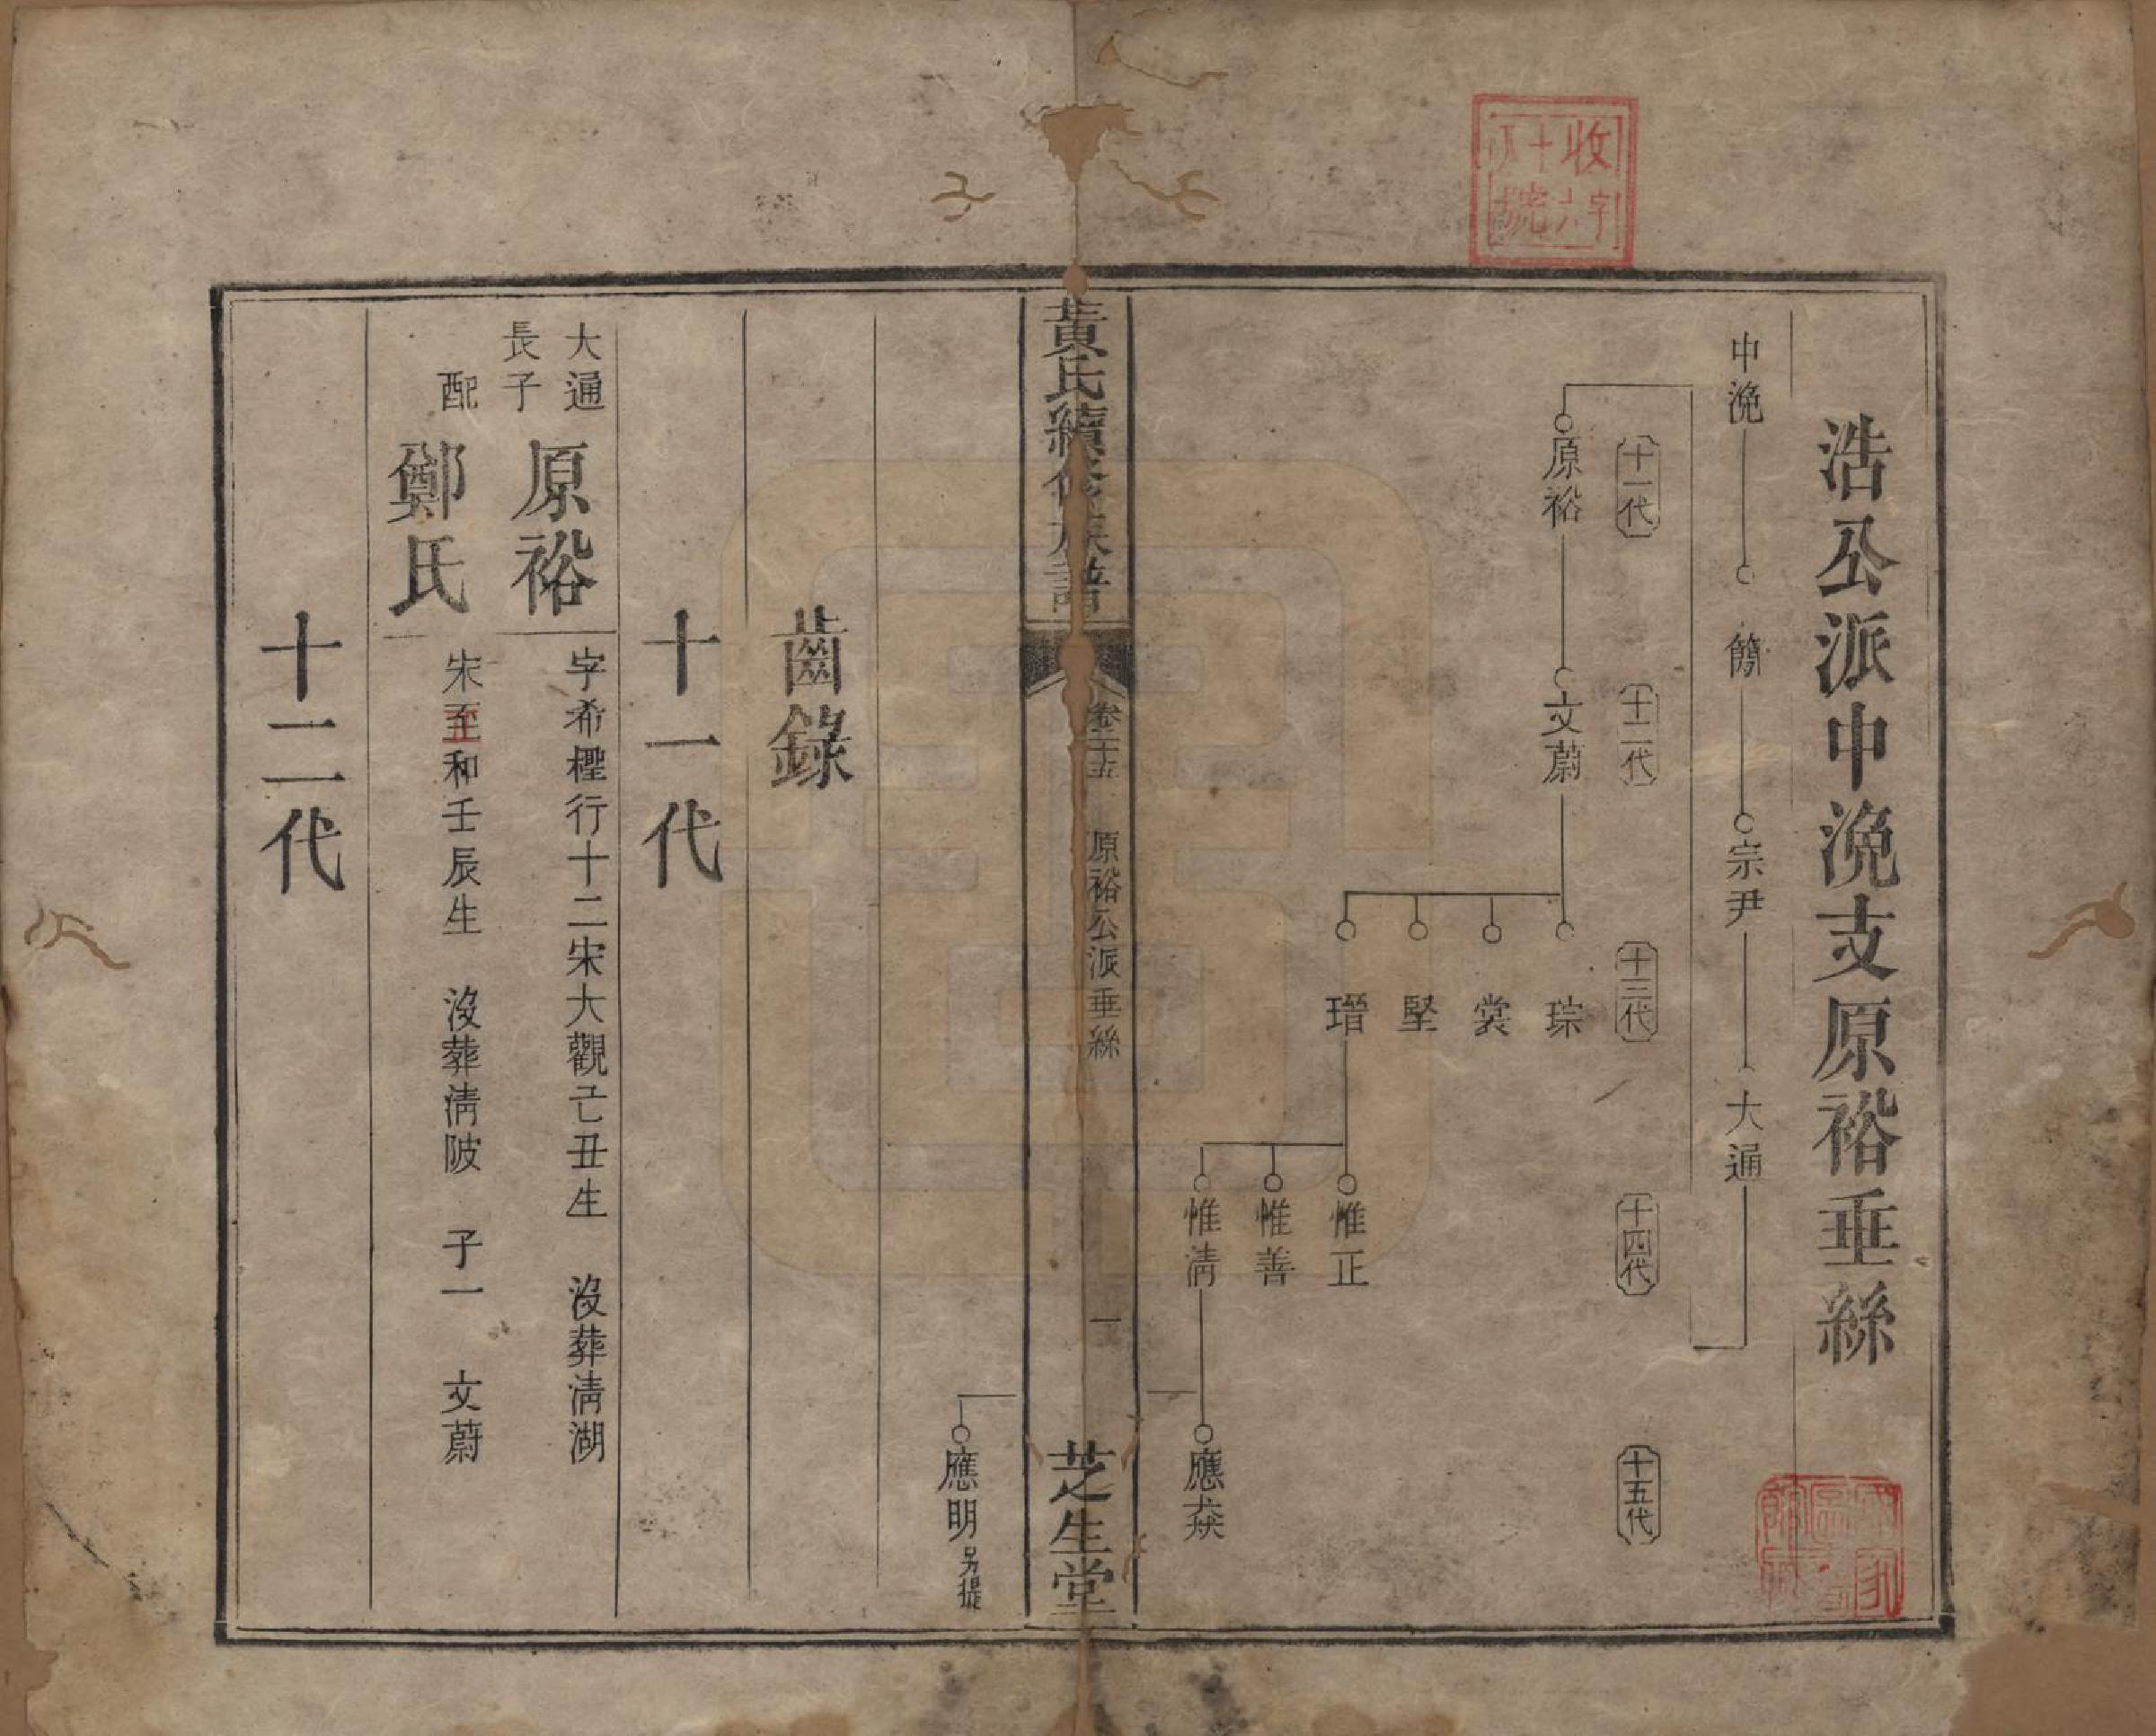 浩公派中浼支原裕垂絲
中浼 簡 宗尹 大通
十一代 十二代 十三代 十四代 十五代
原裕 文蔚 琮
裳
堅
瑨 惟正
惟善
惟淸 應猋
黃氏續修族譜 卷二十五 原裕公派垂絲 一 芝生堂
應明 另提
齒錄
十一代
大通長子 原裕 字希檉行十二宋大觀己丑生 沒葬淸湖
配 鄭氏 宋至和壬辰生 沒葬淸陂 子一 文蔚
十二代
收字
十六
號